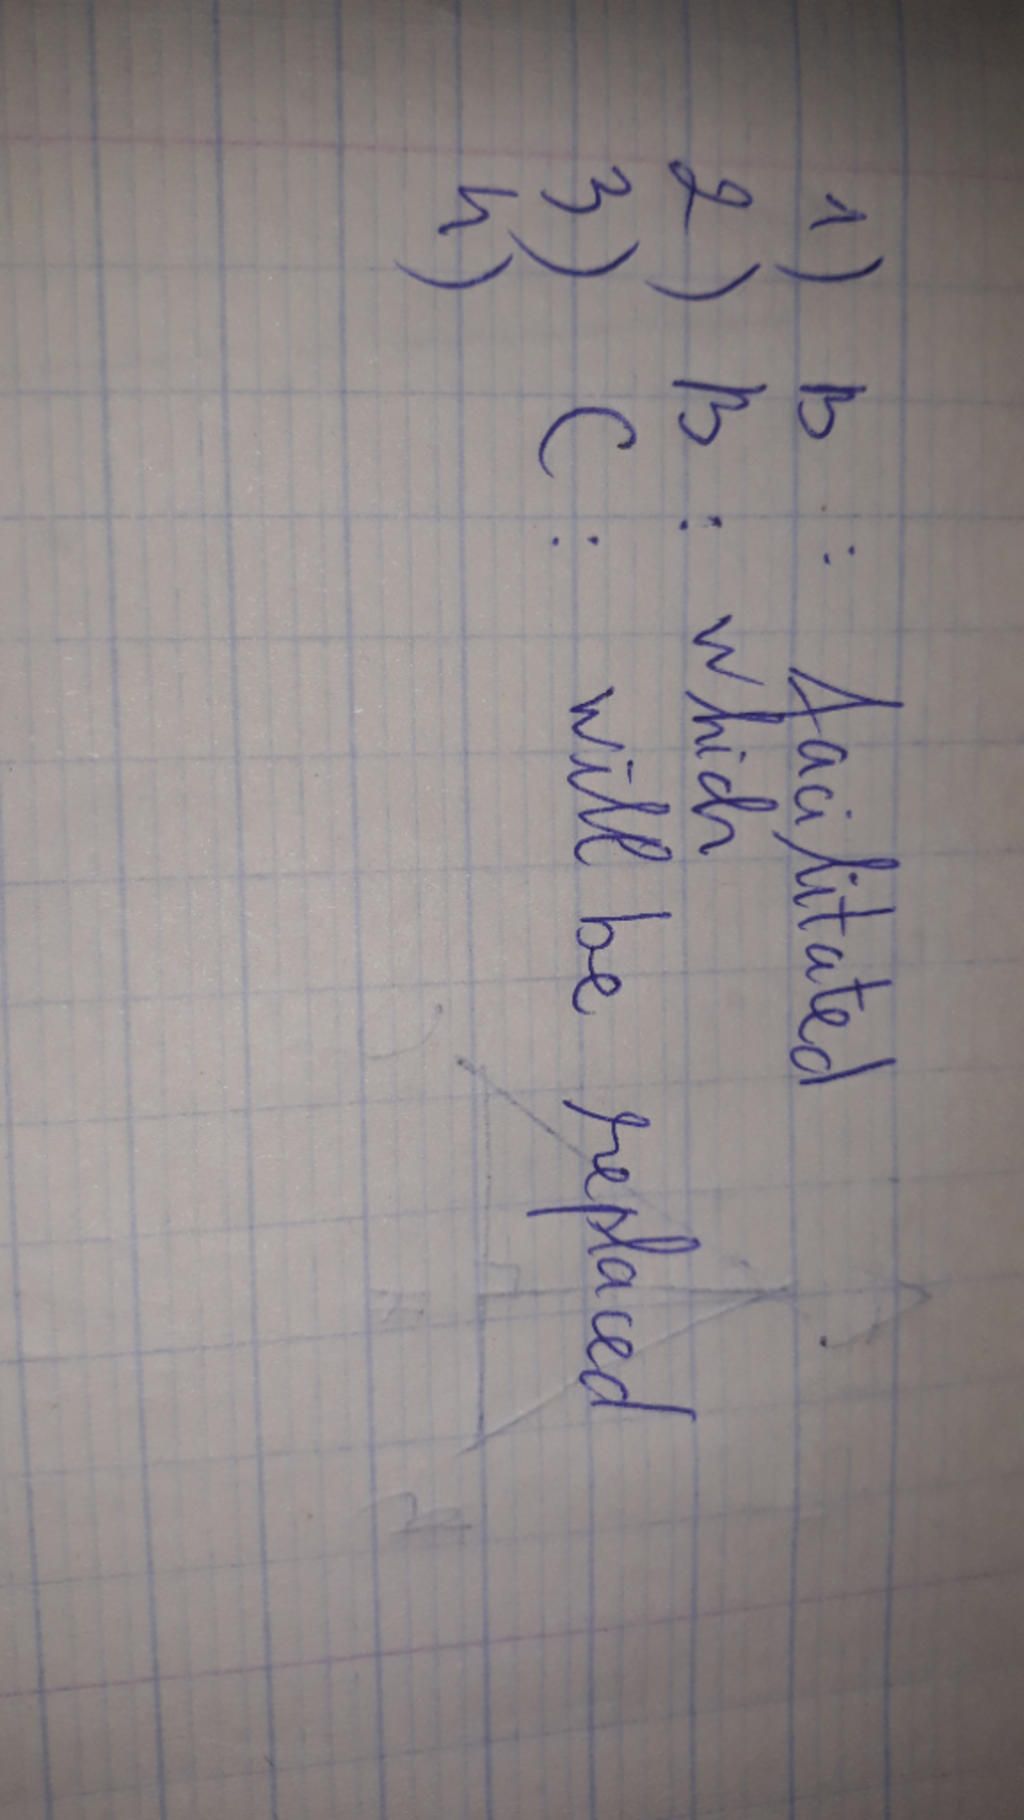 1) B : facilitated
2) B : which
3) C : will be replaced
4)